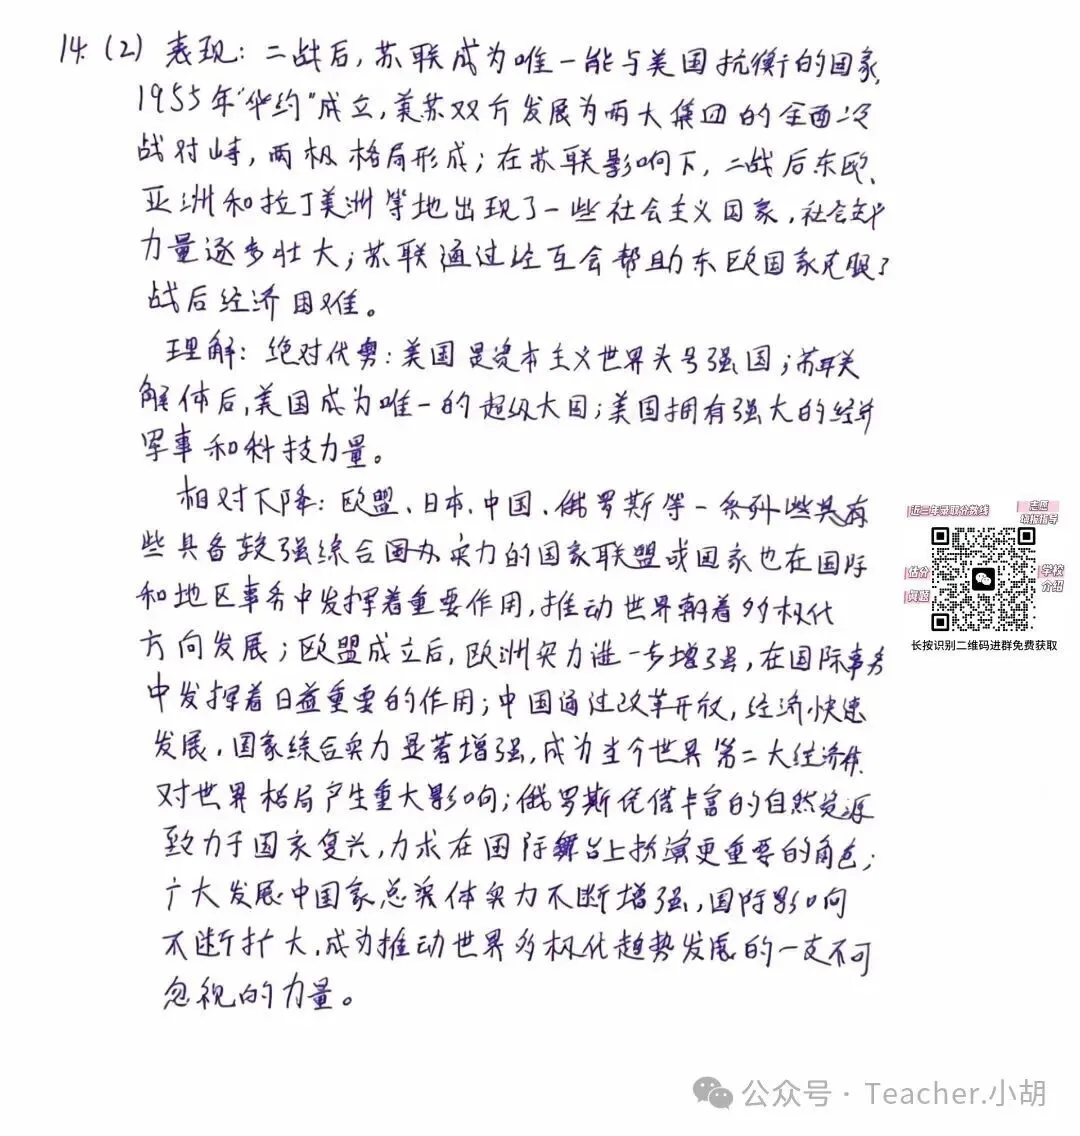 14.(2) 表现：二战后，苏联成为唯一能与美国抗衡的国家，
1955年"华约"成立，美苏双方发展为两大集团的全面冷
战对峙，两极格局形成；在苏联影响下，二战后东欧、
亚洲和拉丁美洲等地出现了一些社会主义国家，社会主义
力量逐步壮大；苏联通过经互会帮助东欧国家克服了
战后经济困难。
理解：绝对优势：美国是资本主义世界头号强国；苏联
解体后，美国成为唯一的超级大国；美国拥有强大的经济
军事和科技力量。
相对下降：欧盟、日本、中国、俄罗斯等一
些具备较强综合实力的国家联盟或国家也在国际
和地区事务中发挥着重要作用，推动世界朝着多极化
方向发展；欧盟成立后，欧洲实力进一步增强，在国际事务
中发挥着日益重要的作用；中国通过改革开放，经济快速
发展，国家综合实力显著增强，成为当今世界第二大经济体，
对世界格局产生重大影响；俄罗斯凭借丰富的自然资源
致力于国家复兴，力求在国际舞台上扮演更重要的角色；
广大发展中国家总体实力不断增强，国际影响
不断扩大，成为推动世界多极化趋势发展的一支不可
忽视的力量。
近三年录取分数线
志愿
填报指导
估分
真题
学校
介绍
长按识别二维码进群免费获取
公众号 · Teacher.小胡